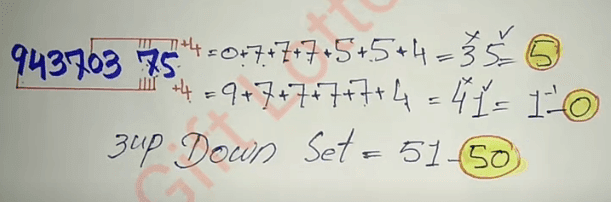 +4 = 0+7+7+7+5+5+4 = 35 = 5
943703 75
+4 = 9+7+7+7+7+4 = 41 = 1-1-0
3up Down Set = 51-50
Gift Lotto